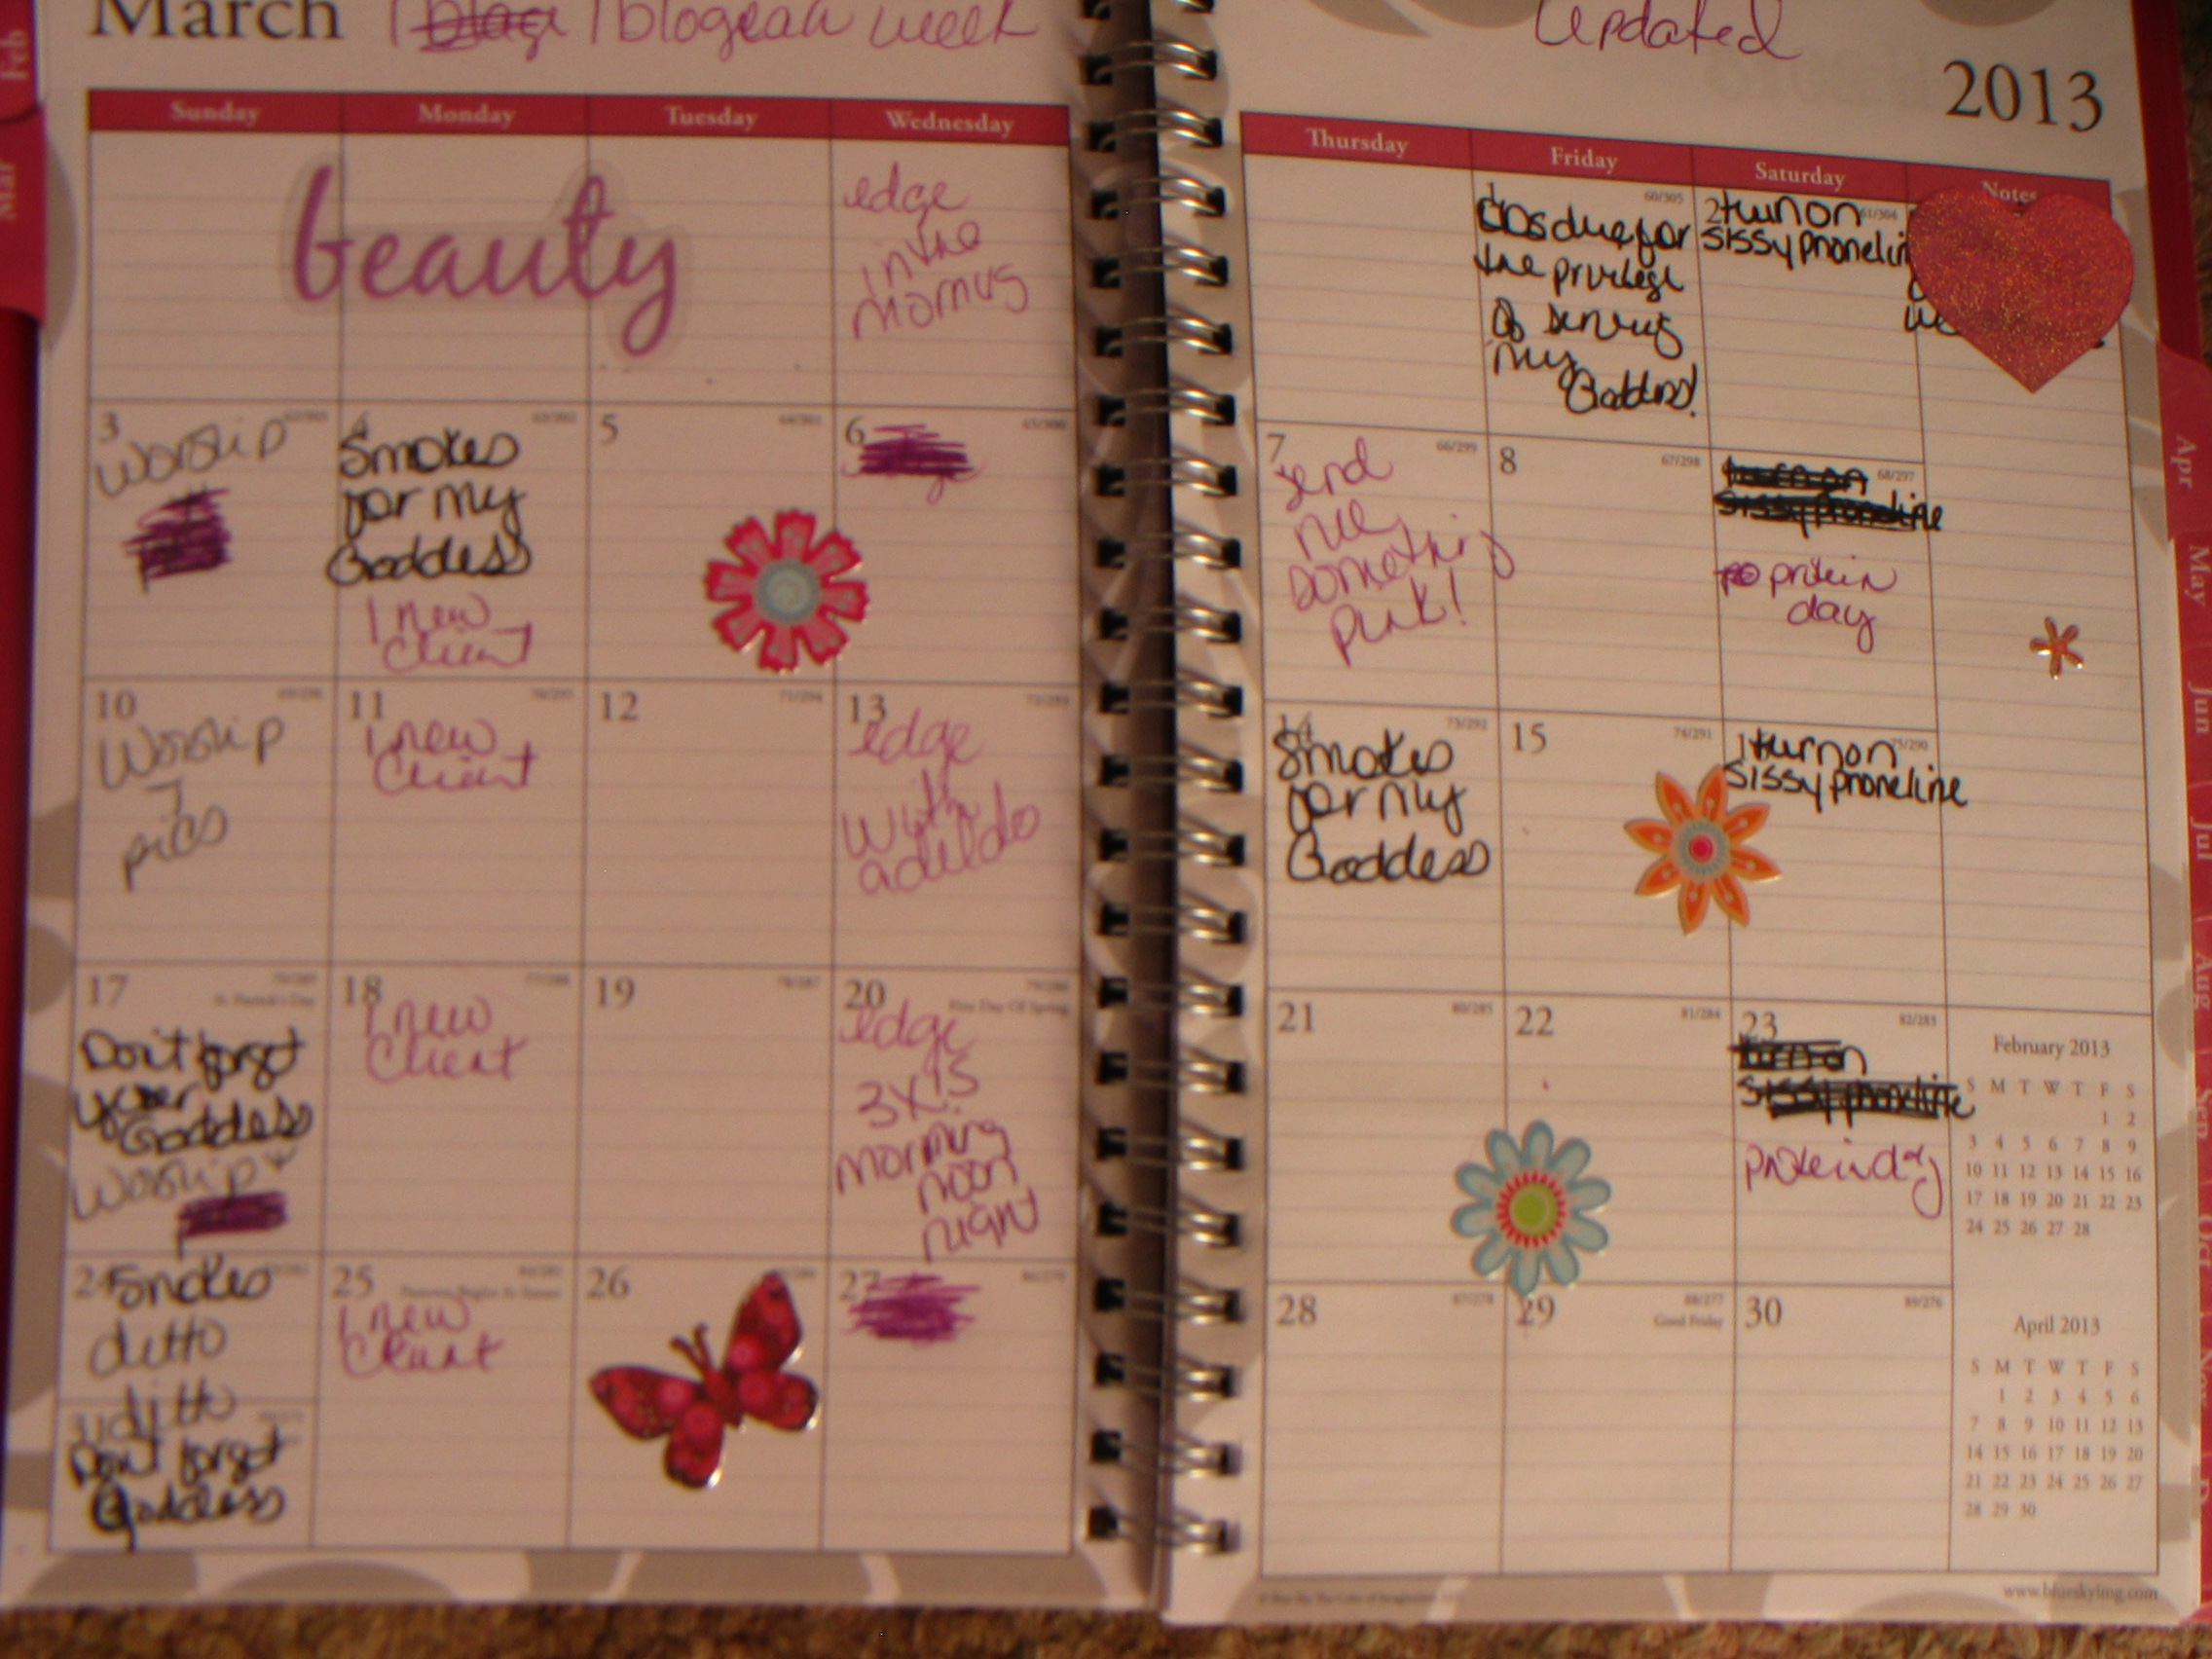 March
1 blog each week
Updated
2013
Feb
Mar
Sunday
Monday
Tuesday
Wednesday
Thursday
Friday
Saturday
Notes
beauty
edge
in the
morning
1
60/305
due for
the privilege
of serving
my
Goddess!
2
61/304
turn on
sissyphoneline
3
Worship
4
Smokes
for my
Goddess
1 new
client
5
6
7
66/299
send
me
something
pink!
8
67/298
68/297
turn on
sissyphoneline
protein
day
10
Worship
7
pics
11
1 new
client
12
71/294
13
72/293
edge
with
a dildo
14
73/292
Smokes
for my
Goddess
15
74/291
75/290
turn on
sissyphoneline
17
St. Patrick's Day
Don't forget
your
Goddess
Worship +
18
1 new
client
19
20
First Day Of Spring
edge
3x!s
morning
noon
night
21
80/285
22
81/284
23
82/283
turn on
sissyphoneline
protein day
24
Smokes
ditto
ditto
Don't forget
Goddess
25
1 new
client
26
27
28
87/278
29
88/277
Good Friday
30
89/276
February 2013
S M T W T F S
1 2
3 4 5 6 7 8 9
10 11 12 13 14 15 16
17 18 19 20 21 22 23
24 25 26 27 28
April 2013
S M T W T F S
1 2 3 4 5 6
7 8 9 10 11 12 13
14 15 16 17 18 19 20
21 22 23 24 25 26 27
28 29 30
www.blueskyimg.com
Apr
May
Jun
Jul
Aug
Sep
Oct
Nov